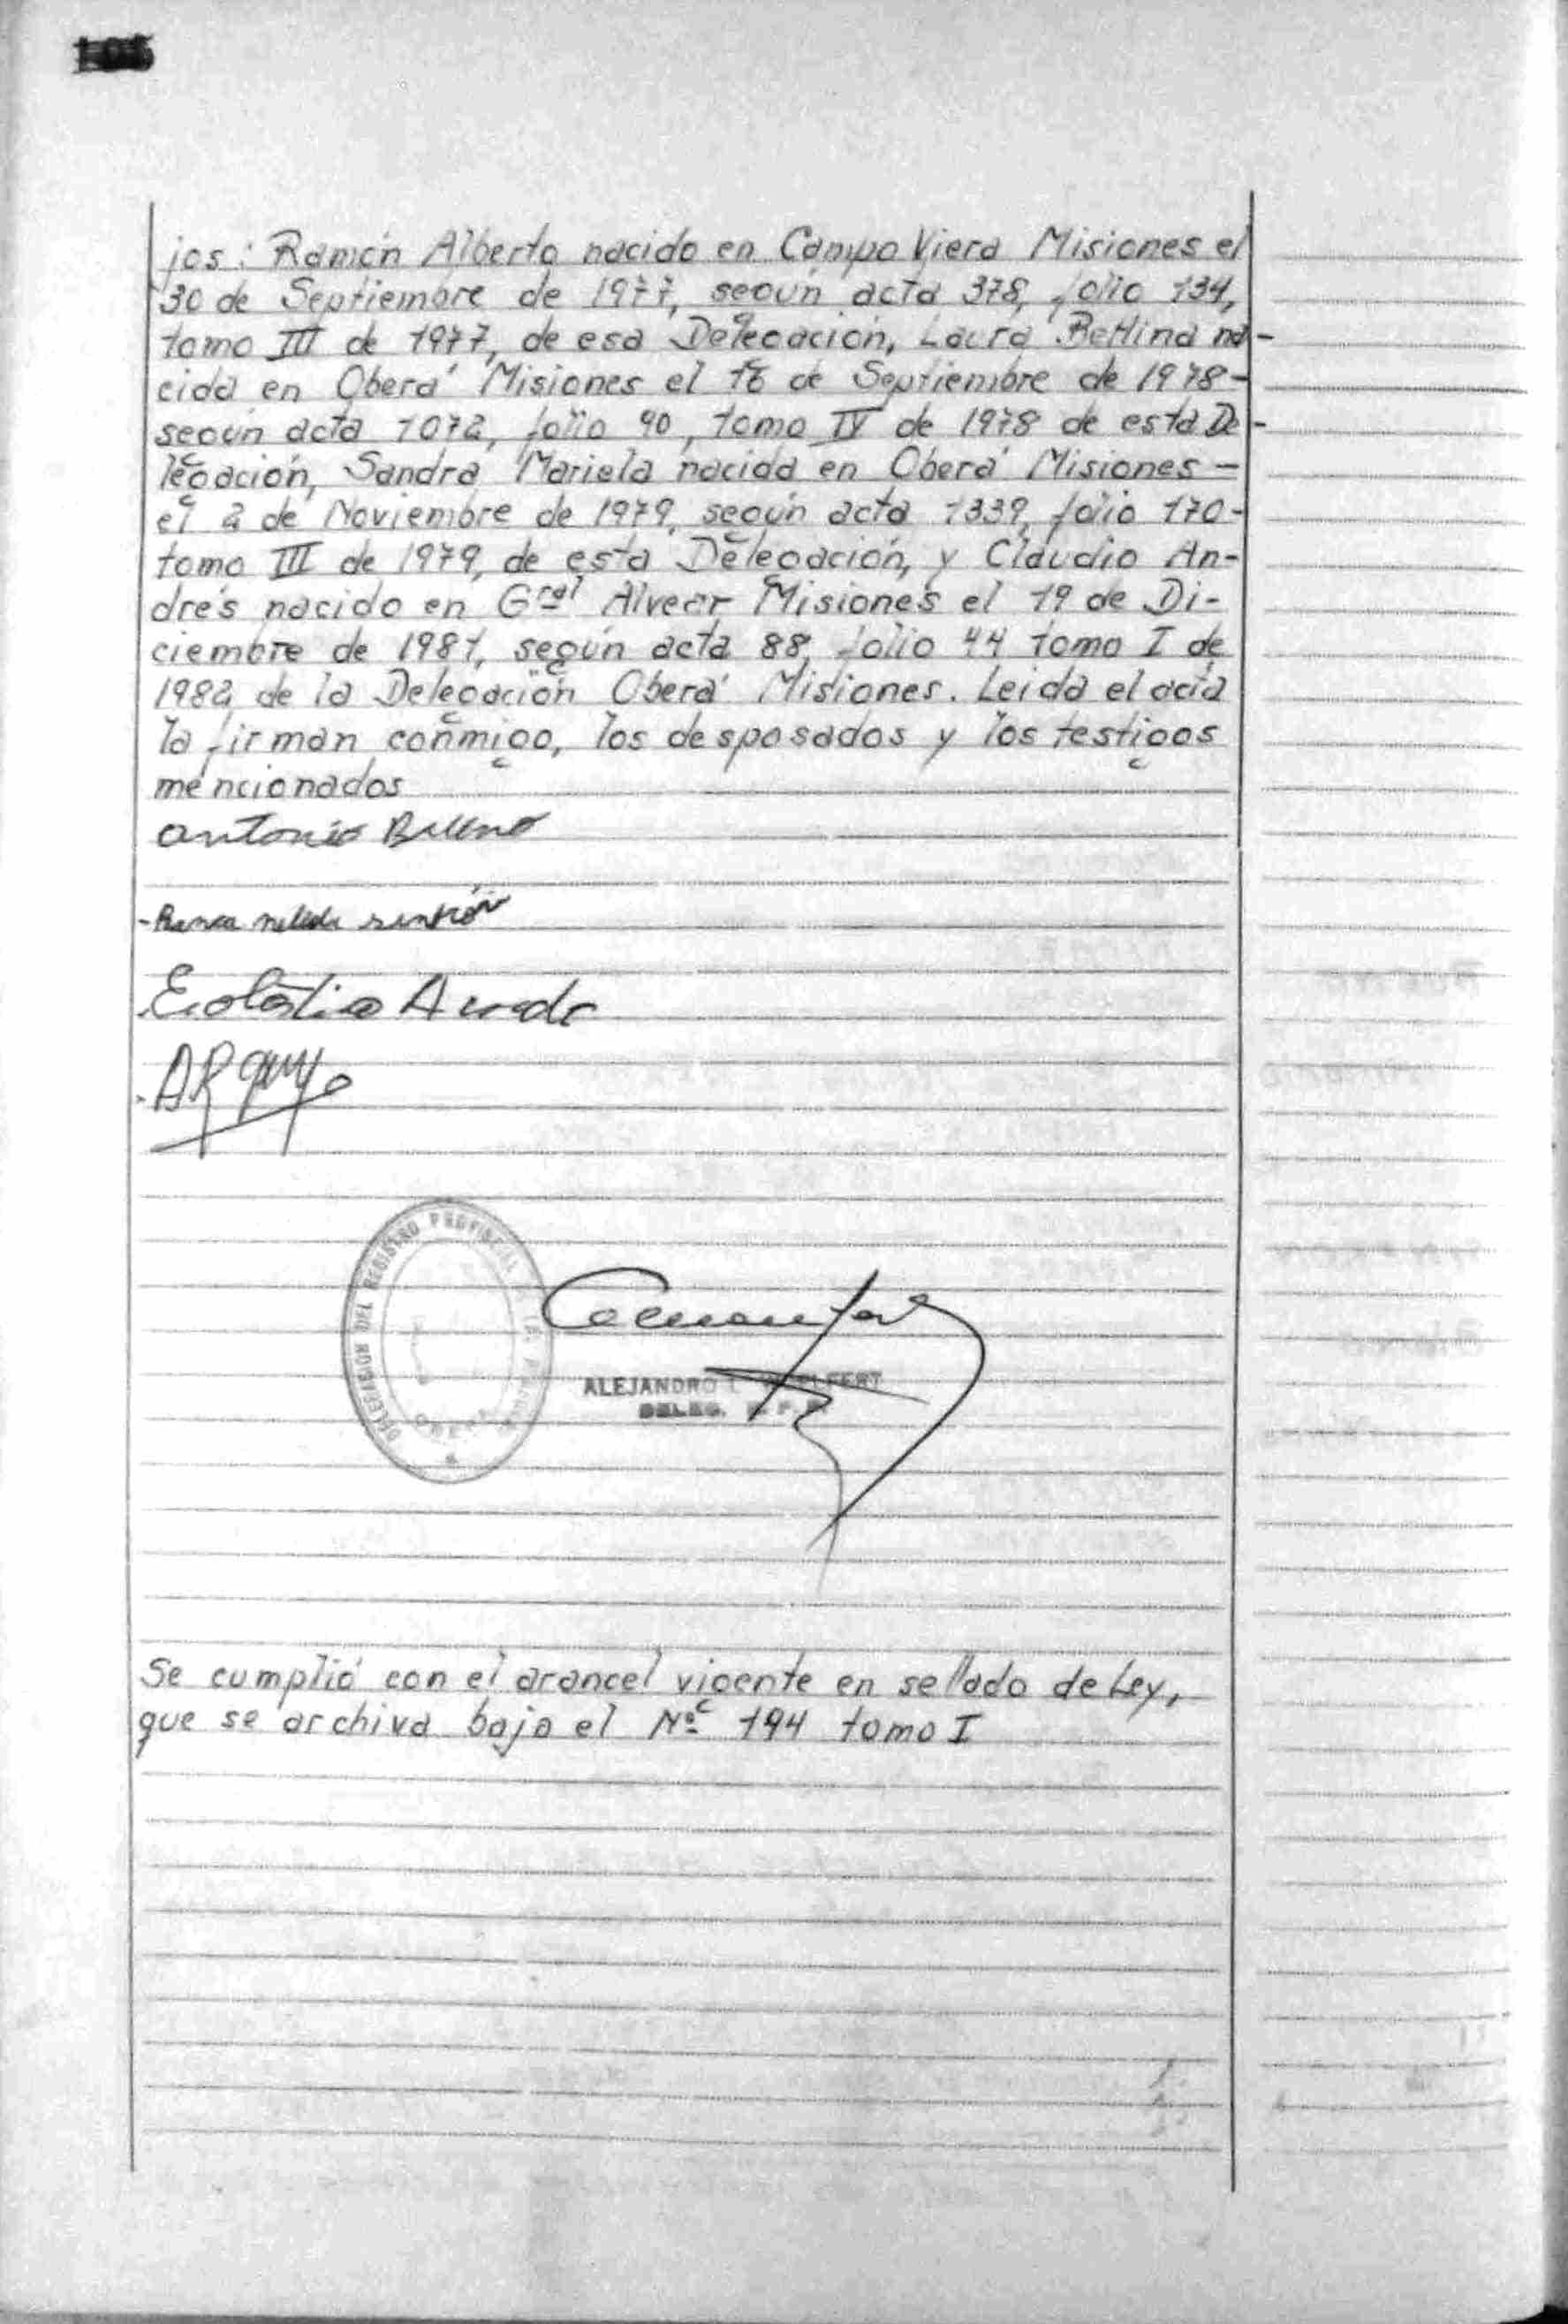 jos: Ramón Alberto nacido en Campo Viera Misiones el
30 de Septiembre de 1977, según acta 378, folio 134,
tomo III de 1977, de esa Delegación, Laura Bettina na-
cida en Oberá Misiones el de Septiembre de 1978-
según acta 1072, folio 90, tomo IV de 1978 de esta De-
legación, Sandra Mariela nacida en Oberá Misiones-
el 2 de Noviembre de 1979, según acta 1339, folio 170-
tomo III de 1979, de esta Delegación, y Claudio An-
drés nacido en Gral Alvear Misiones el 19 de Di-
ciembre de 1981, según acta 88, folio 44 tomo I de
1982 de la Delegación Oberá Misiones. Leida el acta
la firman conmigo, los desposados y los testigos
mencionados
Antonio Bueno
DELEGACION DEL REGISTRO PROVINCIAL DE LA
OBERA
ALEJANDRO
DELEG.
Se cumplió con el arancel vigente en sellado de Ley,
que se archiva bajo el Nº 194 tomo I